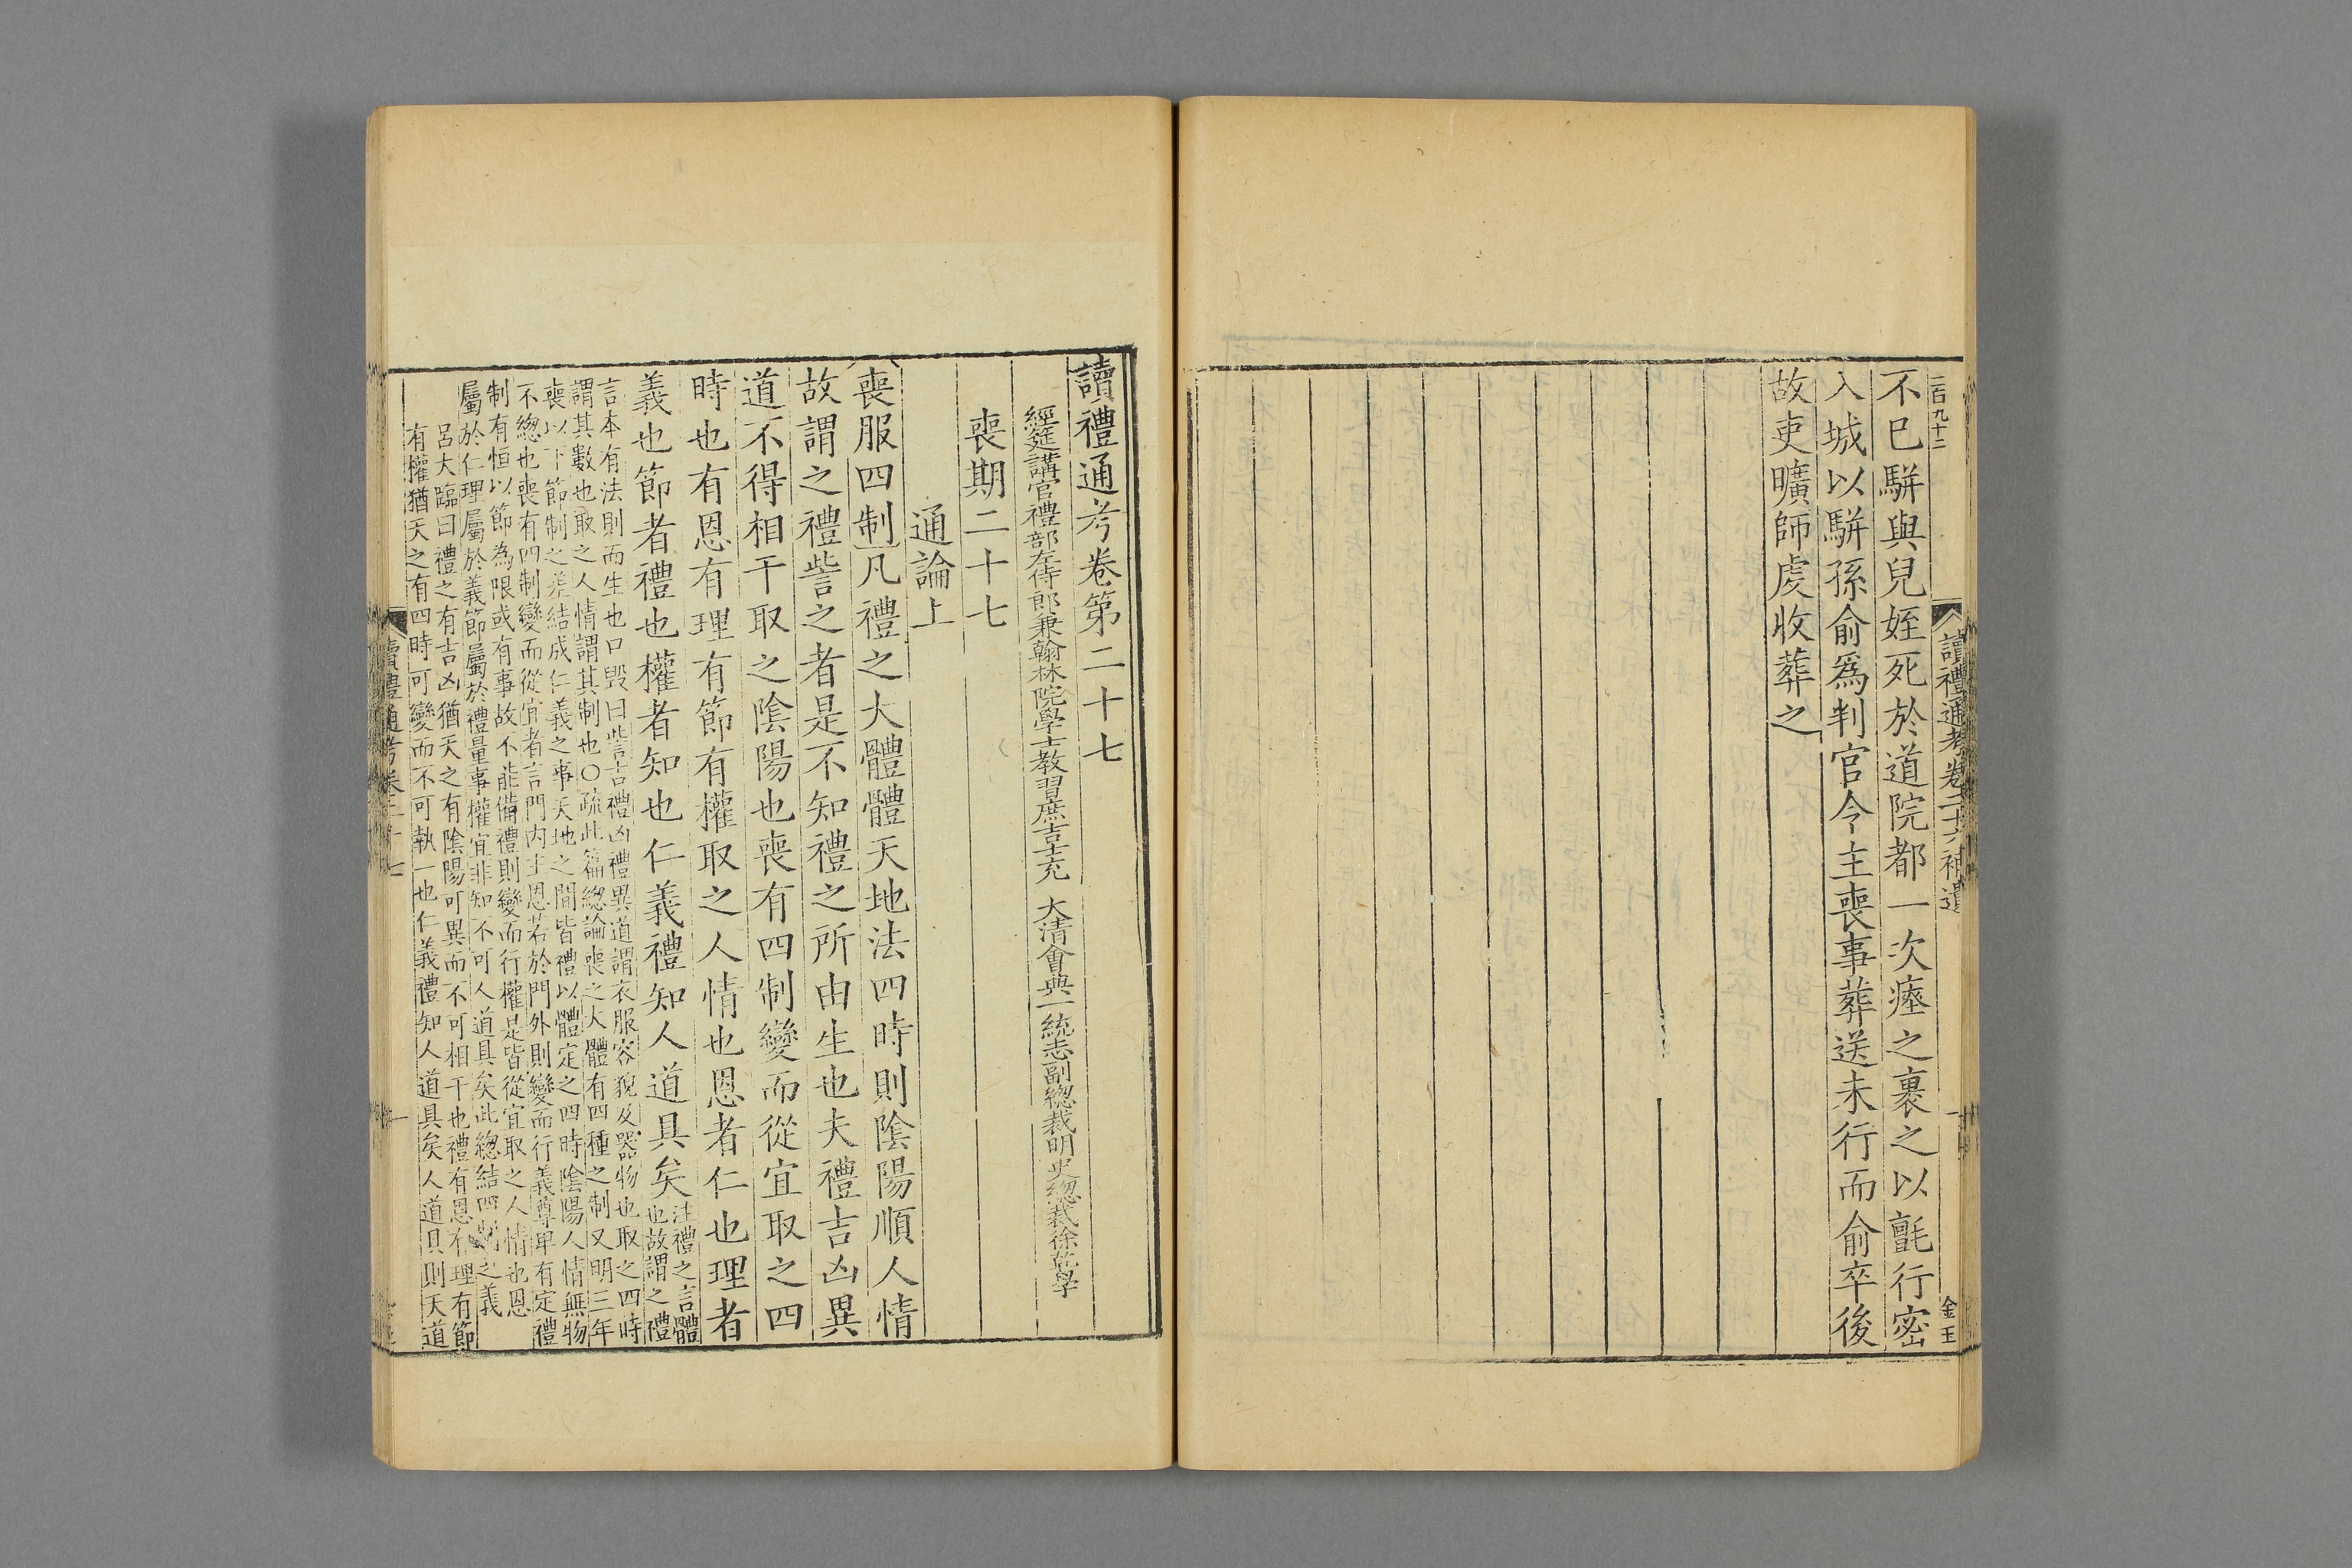 二百九十二
讀禮通考卷二十六補遺
金玉
不巳駢與兒姪死於道院都一次瘞之裹之以氈行密
入城以駢孫俞爲判官令主喪事葬送未行而俞卒後
故吏曠師虔收葬之
讀禮通考卷第二十七
經筵講官禮部左侍郎兼翰林院學士教習庶吉士充　大清會典一統志副總裁明史總裁徐乾學
喪期二十七
通論上
喪服四制凡禮之大體體天地法四時則陰陽順人情
故謂之禮訾之者是不知禮之所由生也夫禮吉凶異
道不得相干取之陰陽也喪有四制變而從宜取之四
時也有恩有理有節有權取之人情也恩者仁也理者
義也節者禮也權者知也仁義禮知人道具矣
注禮之言體
也故謂之禮
言本有法則而生也口毀曰訾吉禮凶禮異道謂衣服容貌及器物也取之四時
謂其數也取之人情謂其制也○疏此篇總論喪之大體有四種之制又明三年
喪以下節制之差結成仁義之事天地之間皆禮以體定之四時陰陽人情無物
不總也喪有四制變而從宜者言門內主恩若於門外則變而行義尊卑有定禮
制有恒以節為限或有事故不能備禮則變而行權是皆從宜取之人情也恩
屬於仁理屬於義節屬於禮量事權宜非知不可人道具矣此總結四制之義
呂大臨曰禮之有吉凶猶天之有陰陽可異而不可相干也禮有恩有理有節
有權猶天之有四時可變而不可執一也仁義禮知人道具矣人道具則天道
讀禮通考卷二十七
一